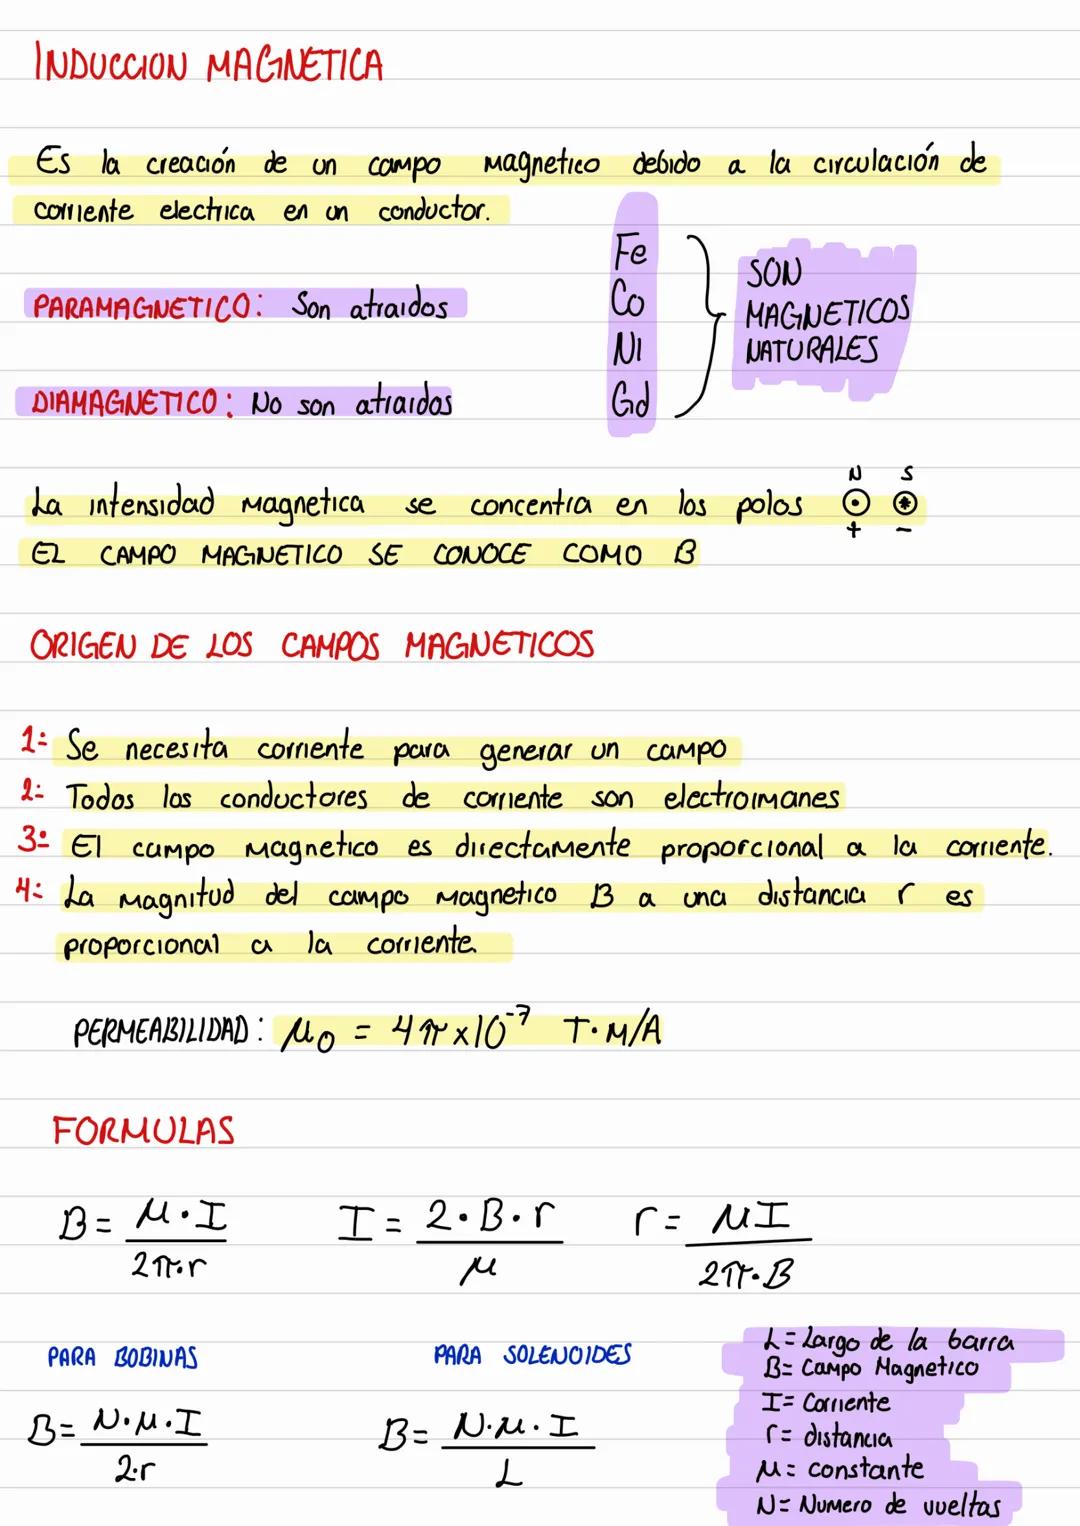 INDUCCION MAGNETICA
Es la creación de un campo magnetico debido a la circulación de
corriente electrica en un conductor.
Fe
Co
Ni
Gd
SON
MAGNETICOS
NATURALES
PARAMAGNETICO: Son atraidos
DIAMAGNETICO: No son atraidos
N S
La intensidad magnetica se concentra en los polos
+ -
EL CAMPO MAGNETICO SE CONOCE COMO B
ORIGEN DE LOS CAMPOS MAGNETICOS
1: Se necesita corriente para generar un campo
2: Todos los conductores de corriente son electroimanes
3: El campo magnetico es directamente proporcional a la corriente.
4: La magnitud del campo magnetico B a una distancia r es
proporcional a la corriente
PERMEABILIDAD: μo = 4π x 10⁻⁷ T·M/A
FORMULAS
B = μ·I / 2π·r I = 2·B·r / μ r = μI / 2π·B
PARA BOBINAS
B = N·μ·I / 2·r
PARA SOLENOIDES
B = N·μ·I / L
L = Largo de la barra
B = Campo Magnetico
I = Corriente
r = distancia
μ = constante
N = Numero de vueltas